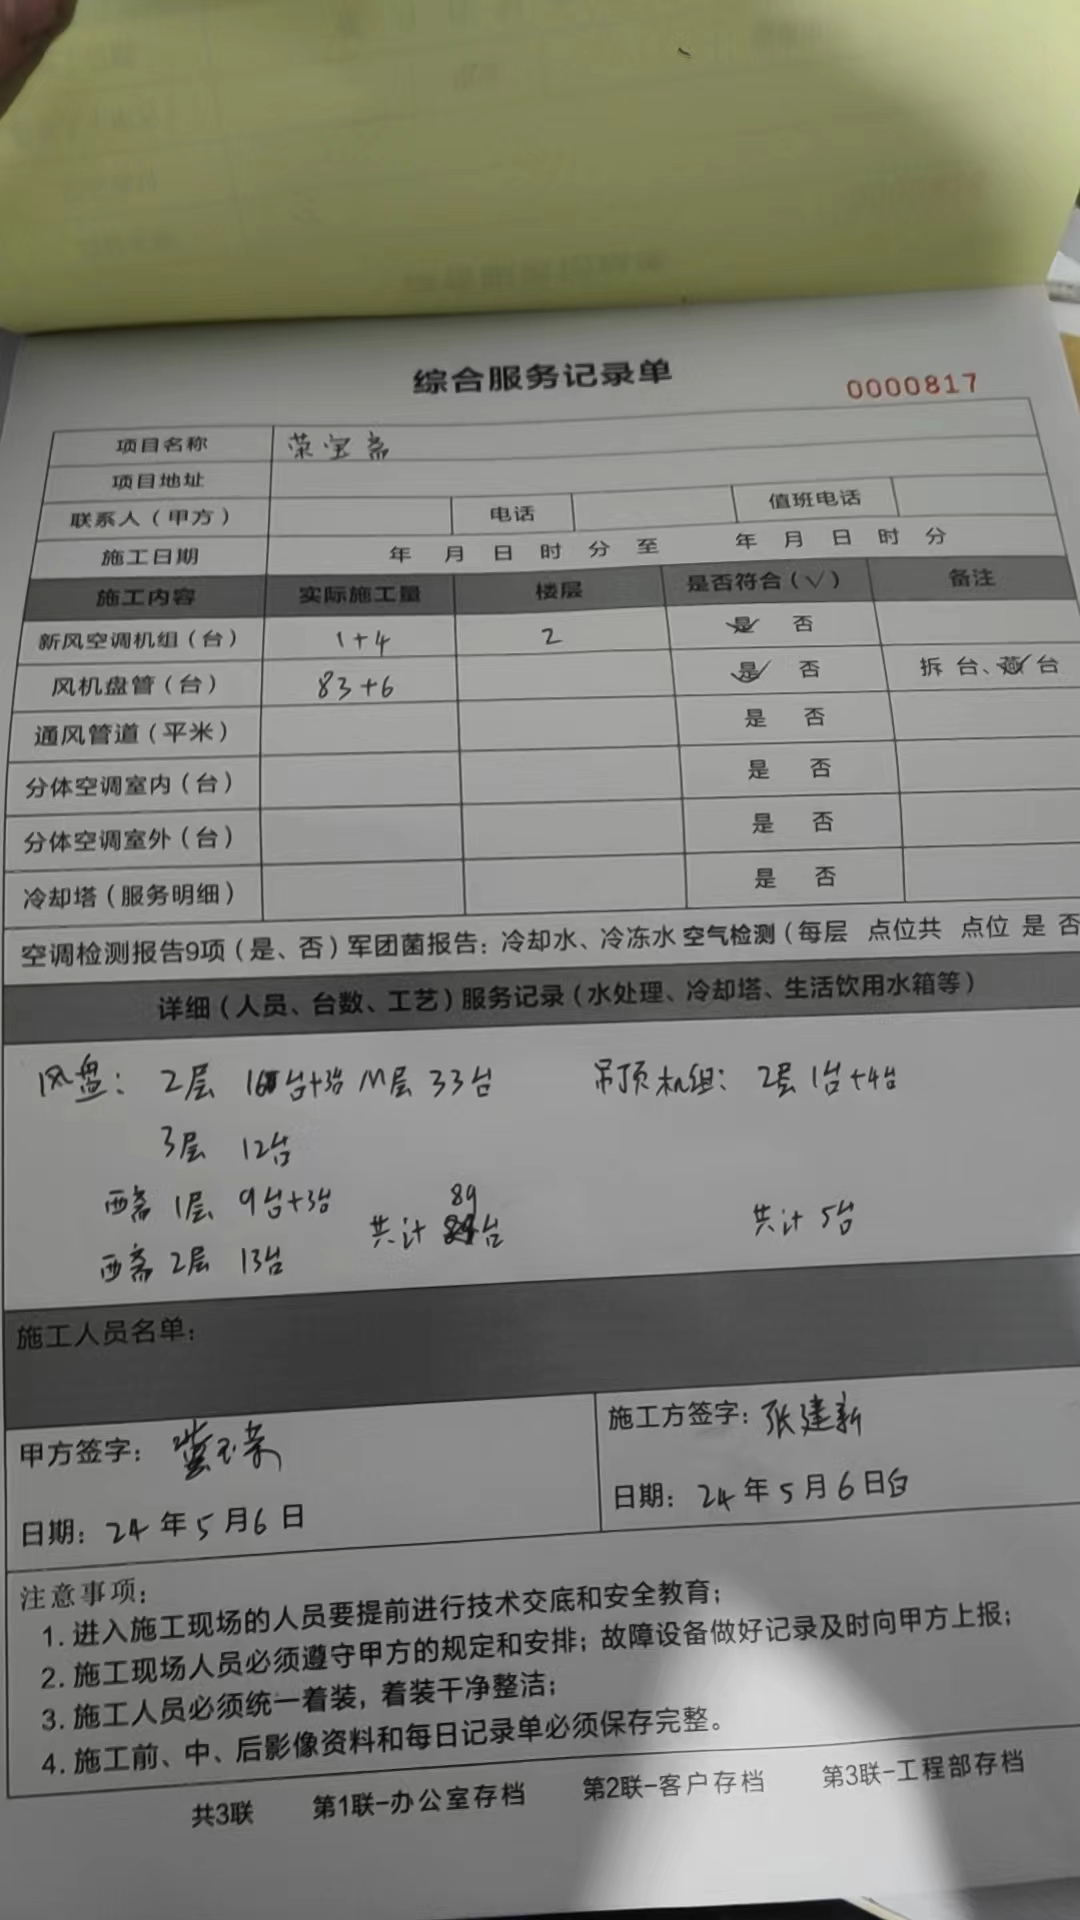 综合服务记录单
0000817
项目名称 荣宝斋
项目地址
联系人（甲方） 电话 值班电话
施工日期 年 月 日 时 分 至 年 月 日 时 分
施工内容 实际施工量 楼层 是否符合（√） 备注
新风空调机组（台） 1+4 2 是 否
风机盘管（台） 83+6 是 否 拆 台、 台
通风管道（平米） 是 否
分体空调室内（台） 是 否
分体空调室外（台） 是 否
冷却塔（服务明细） 是 否
空调检测报告9项（是、否）军团菌报告：冷却水、冷冻水 空气检测（每层 点位共 点位 是 否
详细（人员、台数、工艺）服务记录（水处理、冷却塔、生活饮用水箱等）
风盘： 2层 16台+3台 M层 33台 吊顶机组： 2层 1台+4台
3层 12台
西斋 1层 9台+3台
89
共计 台 共计 5台
西斋 2层 13台
施工人员名单：
甲方签字： 施工方签字：张建新
日期：24年5月6日 日期：24年5月6日白
注意事项：
1. 进入施工现场的人员要提前进行技术交底和安全教育；
2. 施工现场人员必须遵守甲方的规定和安排；故障设备做好记录及时向甲方上报；
3. 施工人员必须统一着装，着装干净整洁；
4. 施工前、中、后影像资料和每日记录单必须保存完整。
共3联 第1联-办公室存档 第2联-客户存档 第3联-工程部存档